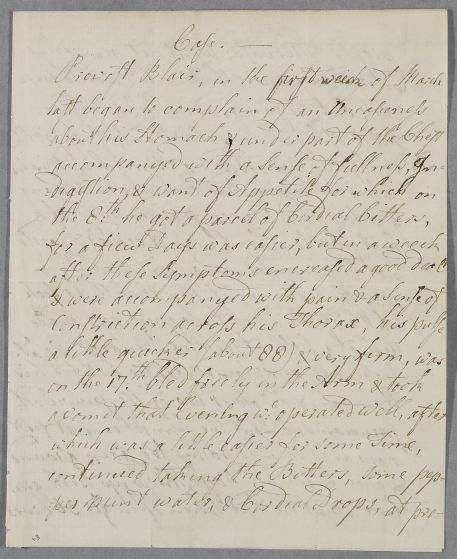 Case. —
Provost Blair, in the first week of March
last began to complain of an Uneasyness
about his Stomach & under part of the Chest
accompanyed with a sense of fullness, In-
digestion, & want of Appetite for which on
the 8.th he got a parcel of Cordial Bitters,
for a few Days was easier, but in a week
after these Symptoms encreased a good deal
& were accompanyed with pain & a Sense of
Constriction across his Thorax, his pulse
a little quicker (about 88) & very firm, was
on the 17.th bled freely in the Arm & took
a vomit that Evening wc. operated well, after
which was a little easier for some Time,
continued taking the Bitters, some pep-
per mint water, & Cordial Drops, at pre-